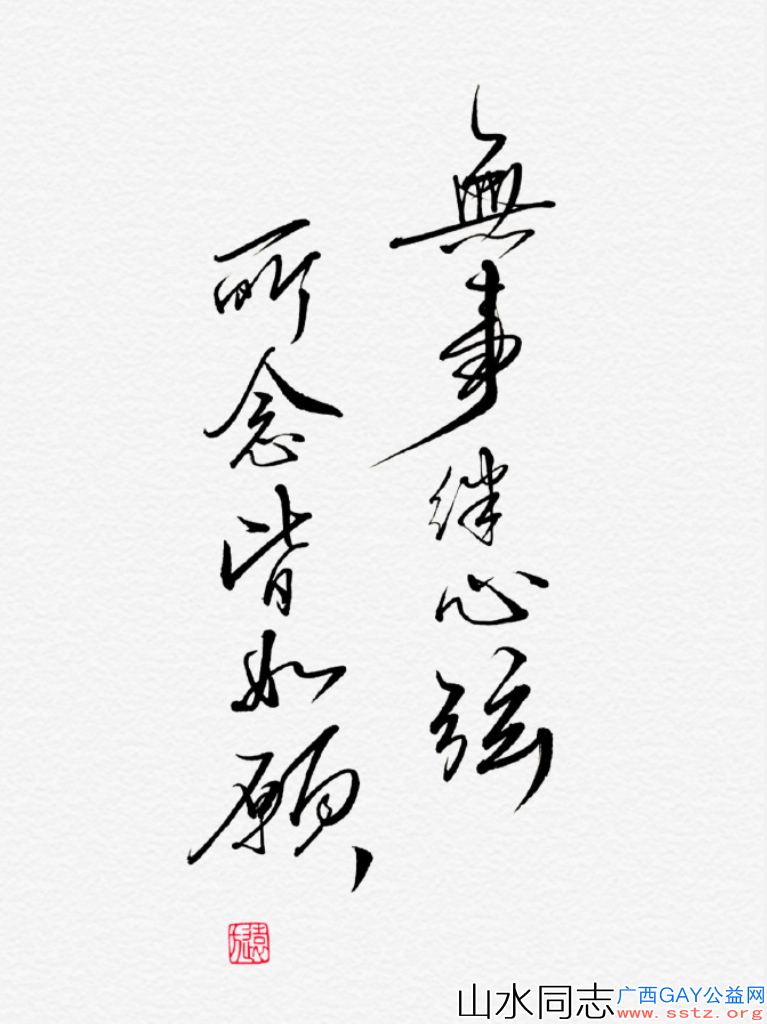 無事絆心弦
所念皆如願
山水同志
广西GAY公益网
www.sstz.org